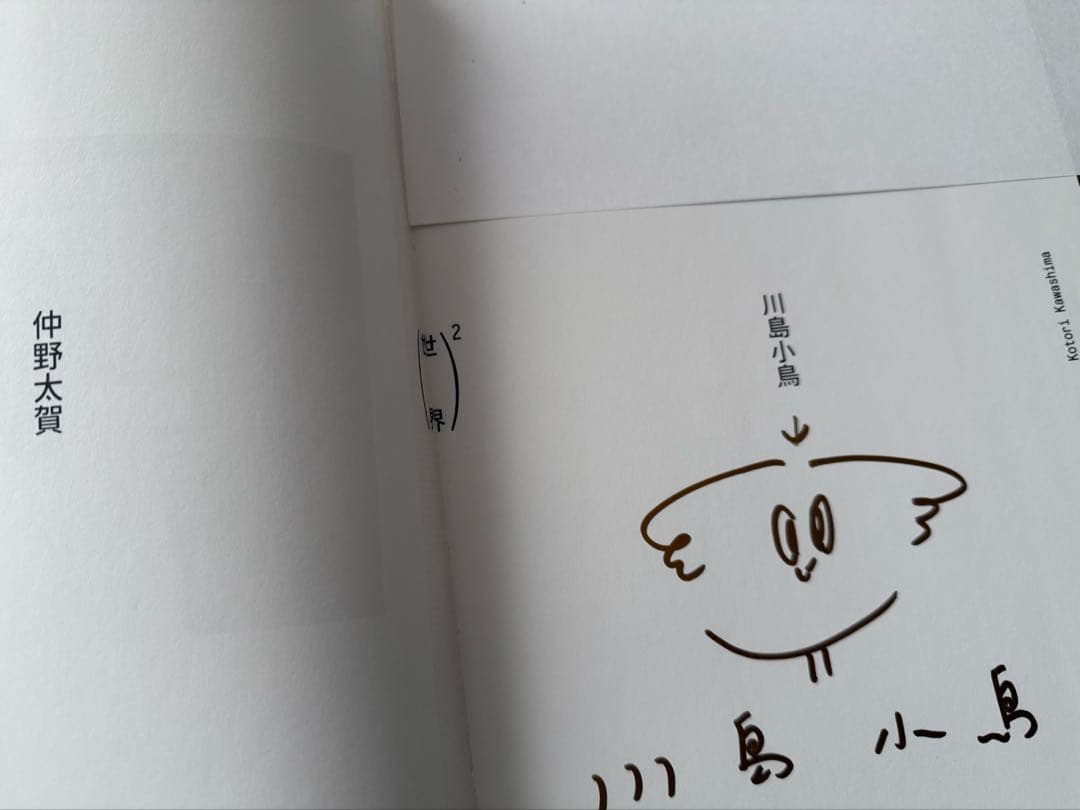 仲野太賀
(世界)²
川島小鳥
Kotori Kawashima
川島 小鳥